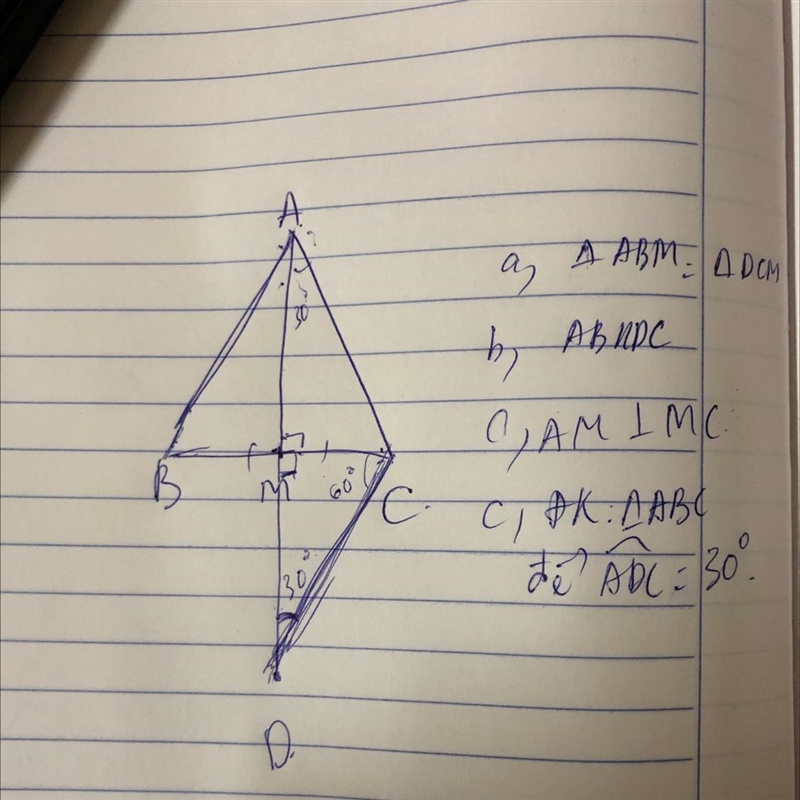 A
?
30
B
M
60°
C
30°
D
a, Δ ABM = Δ DCM
b, AB // DC
c, AM ⊥ MC
c, ĐK: ΔABC
để ADC = 30°.